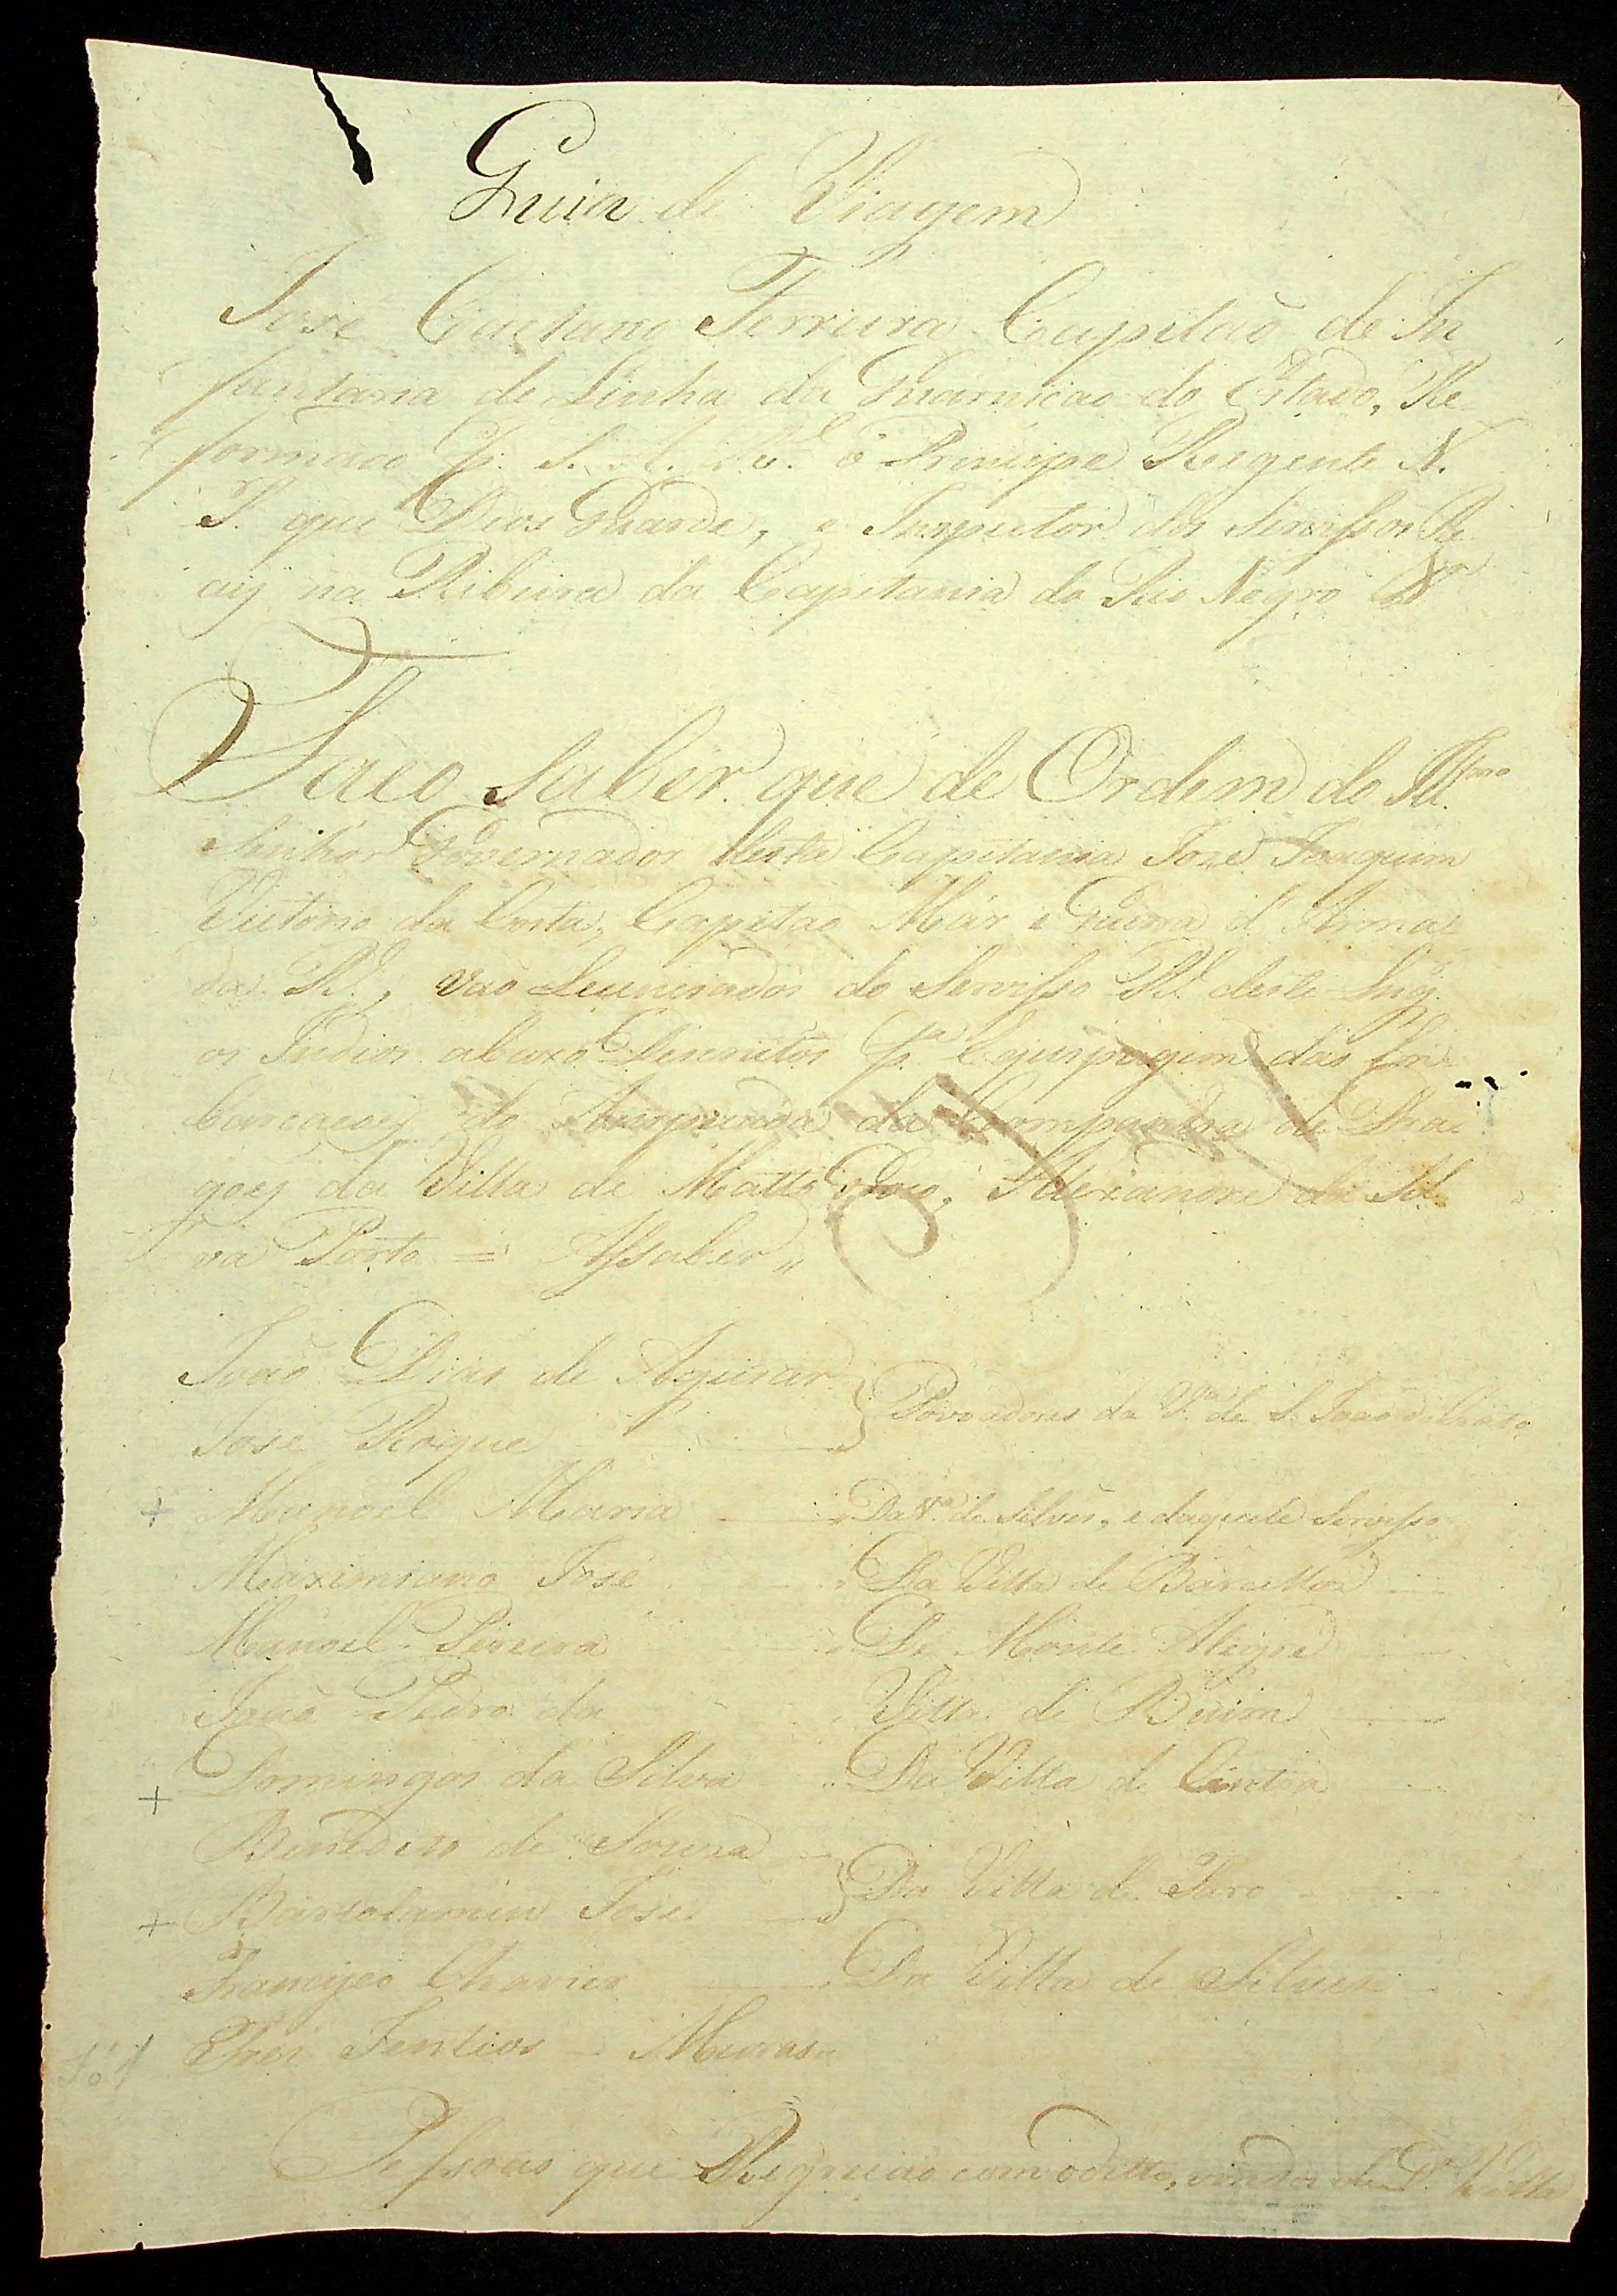 Guia de Viagem
José Caetano Ferreira Capitaõ de In
fantaria de Linha da Guarnicaõ do Estado, Re
formado p. S. A. R.l o Principe Regente N.
S. que Deos Guarde, e Inspector dos Servissos Re
aiz na Ribeira da Capitania do Rio Negro
Faco Saber que de Ordem do Ill.mo
Senhor Governador desta Capitania José Joaquim
Victorio da Costa, Capitaõ Már e Guerra d' Arma
da R.l, vaõ Licenciados do Servisso R.l deste Lug.
os Indios abaixo Discritos p.a Equipagem das Em
barcacoez do da Companhia de Dra
goez da Villa de Matto Groço, Alexandre da Sil
va Porto = Assaber,,
Joaõ Dias de Aguiar
José Roque } Povoadores da V.a de S. Joaõ do Crato
+ Manoel Maria — Da V.a de Silves, e daquele Servisso
Maximiano José Da Villa de Barcellos
Manoel Pereira De Monte Alegre
Joaõ Pedro da Villa de Boim
+ Domingos da Silva Da Villa de Cintra
Benedito de Souza
+ Bartolameu José } Da Villa de Faro
Francisco Chavier Da Villa de Silves
Tres Jentios — Muras
Pessoas que Regreçaõ com o ditto, vindos da D.a Villa